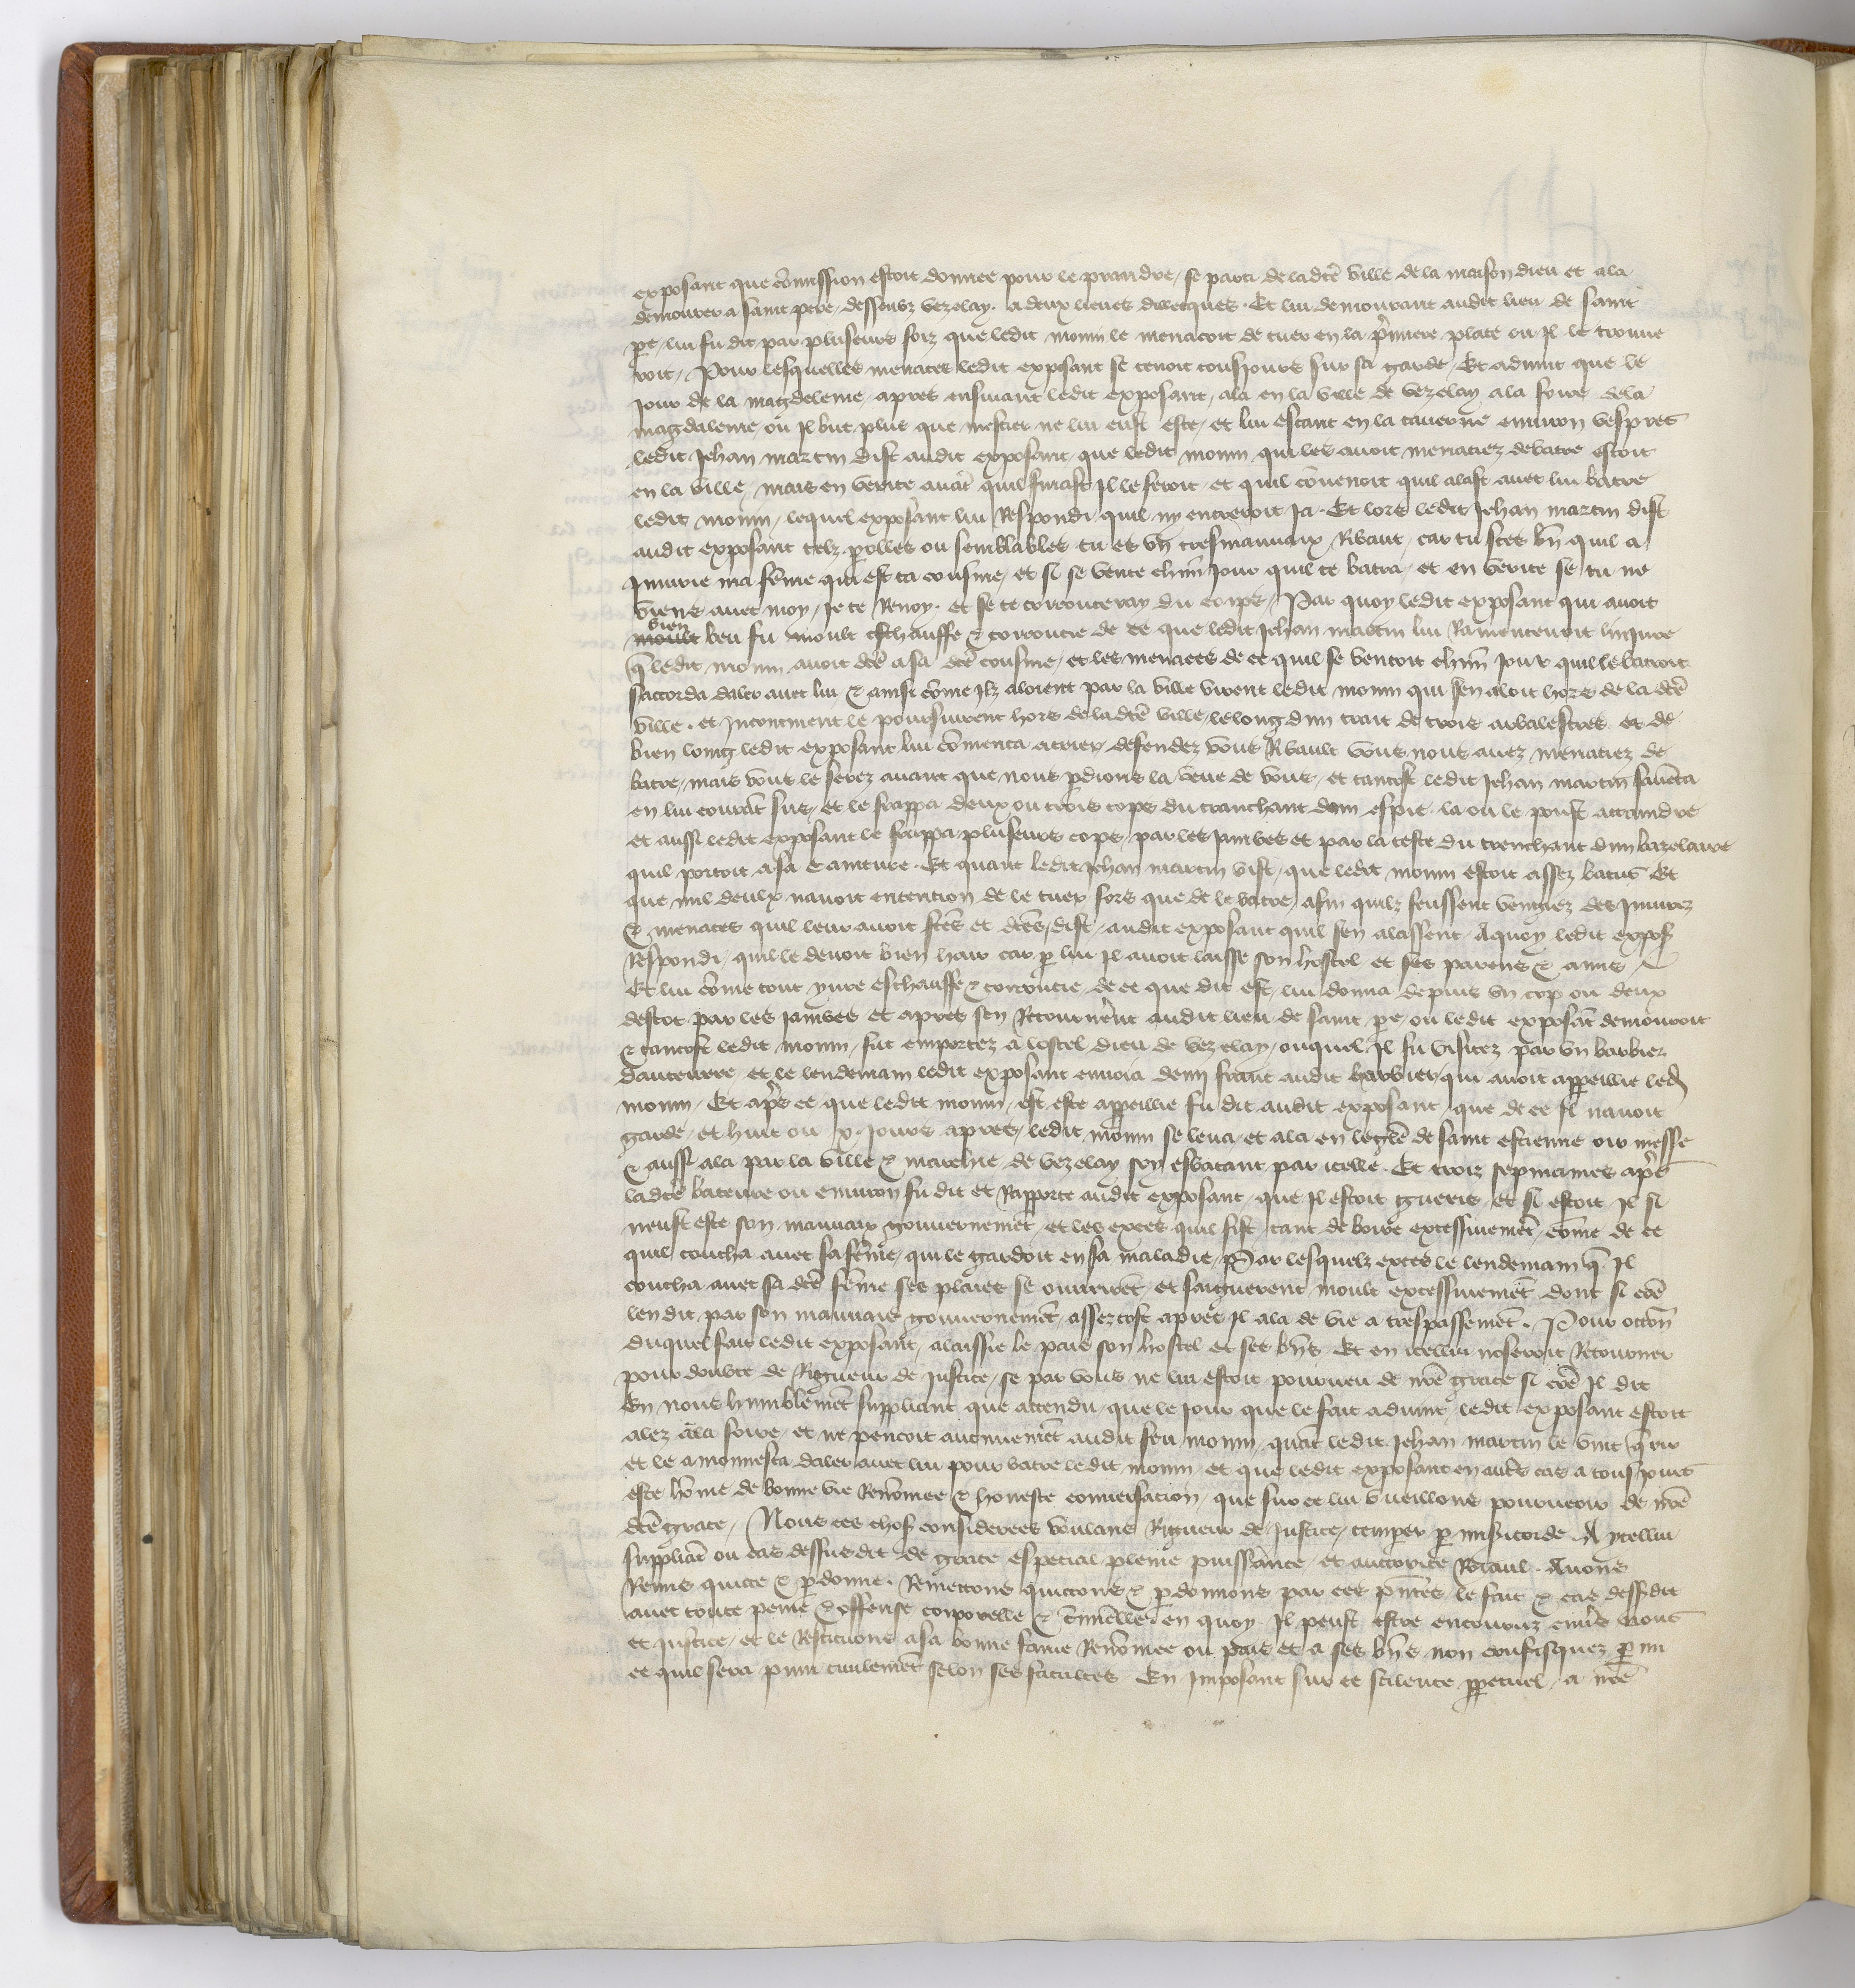 exposant que cōmission estoit donnee pour le prandre / se parti de ladcē ville de la maison dieu et ala
demourer a saint pere / dessoubz vezelay . a deux lieues diluecques . Et lui demourant audit lieu de saint
pe / lui fu dit par pluseurs foiz que ledit monin le menacoit de tuer en la p̄miere place ou Il le trouue
roit / Pour lesquelles menaces ledit exposant se tenoit tousIours sur sa garde / Et aduint que le
Jour de la magdeleine / apres ensuiuant ledit exposant / ala en la ville de vezelay a la foire dela
magdaleine ou Il but plus que mestier ne lui eust este / et lui estant en la tauerne enuiron vespres
ledit Jehan martin dist audit exposant / que ledit monin qui les auoit menaciez de batre estoit
en la ville / mais en verite auāt quil sen alast Il le seroit / et quil cōuenoit quil alast auec lui batre
ledit monin / lequel exposant lui Respondi / quil ny entreroit Ja . Et lors ledit Jehan martin dist
audit exposant telz p̄olles ou semblables tu es vn tresmauuaix Ribaut / car tu sces bn̄ quil a
Iniurie ma fēme qui est ta cousine / et si se vente chūn Jour quil te batra / et en verite se tu ne
viens auec moy / Je te Renoy . et se te courouceray du corps / Par quoy ledit exposant qui auoit
bien
moult beu fu moult eschauffe & courroucie de ce que ledit Jehan martin lui Ramenteuoit liniure
q̄ ledit monin auoit dcē a sa dcē cousine / et les menaces de ce quil se ventoit chūn Jour quil le batroit
saccorda daler auec lui & ainsi cōme Ilz aloient par la ville virent ledit monin qui sen aloit hors de la dcē
ville . et Incontinent le poursuirent hors de ladcē ville / le long dun trait de trois arbalestres et de
bien loing ledit exposant lui cōmenca a crier / defendez vous Ribault vous nous auez menaciez de
batre / mais vous le serez auant que nous p̄dions la veue de vous / et tantost ledit Jehan martin sauēca
en lui courāt sus / et le frappa deux ou trois cops du tranchant dun espie la ou le poust attaindre
et aussi ledit exposant le frappa pluseurs cops / par les Jambes et par la teste du trenchant dun bazelaire
quil portoit a sa cainture . Et quant ledit Jehan martin vist / que ledit monin estoit assez batus Et
que nul deulx nauoit entention de le tuer fors que de le batre / afin quilz feussent vengiez des Iniures
& menaces quil leur auoit fc̄es et dcēs / dist / audit exposant quil sen alassent / Aquoy ledit expos̄
Respondi / quil le deuoit bien hair car p̄ lui Il auoit laisse son hostel et ses parens & amis /
Et lui cōme tout yure eschauffe & courroucie de ce que dit est / lui donna depuis vn cop ou deux
destoc par les Jambes et apres sen Retournerēt audit lieu de saint pe / ou ledit exposāt demouroit
& tantost ledit monin / fut emportez a lostel dieu de vezelay / ouquel Il fu visitez par vn barbier
dauceurre / et le lendemain ledit exposant enuoia demi franc audit barbier / qui auoit appeillie led̄
monin / Et ap̄s ce que ledit monin / est este appeillie fu dit audit exposant / que de ce Il nauoit
garde / et huit ou x . Jours apres / ledit monin se leua / et ala en leglē de saint estienne oir messe
& aussi ala par la ville & marchie de vezelay soy esbatant par icelle . Et trois sepmaines ap̄s
ladcē bateure ou enuiron fu dit et Rapporte audit exposant / que Il estoit gueris / et si estoit Il si
neust este son mauuaix gouuernemēt / et les exces quil fist / tant de boire excessiuemēt / cōme de ce
quil coucha auec sa fēme / qui le gardoit en sa maladie / Par lesquelz exces le lendemain q̄ Il
coucha auec sa dcē fēme ses plaies se ouurirēt / et saignerent moult excessiuemēt dont si cōē
len dit par son mauuais gouuernemēt / assez tost apres Il ala de vie a trespassemēt . Pour occōn̄
duquel fait ledit exposant / a laissie le pais son hostel et ses bn̄s Et en icellui noseroit Retourner
pour doubte de Rigueur de Justice / se par vous ne lui estoit pourueu de nr̄e grace si cōē Il dit
En nous humblemēt suppliant que attendu / que le Jour que le fait aduint / ledit exposant estoit
alez a la foire / et ne pencoit aucunemēt audit feu monin / quāt ledit Jehan martin le vint q̄rir
et le amonnesta daler auec lui pour batre ledit monin / et que ledit exposant en aut̄s cas a tousJours
este hōme de bonne vie Renōmee & honeste conuersacion / que sur ce lui vueillons pourueoir de nr̄e
dcē grace / Nous ces chos̄ considerees voulans Rigueur de Justice / temper̄ p̄ misicorde A ycellui
suppliāt ou cas dessusdit de grace especial plaine puissance et auctorite Roiaul . Auons
Remis quicte & p̄donne . Remettons quictons & p̄donnons par ces p̄ntes le fait & cas dessusdit
auec toute peine & offense corporelle & c̄iminelle / en quoy Il peust estre encouruz enu̅s nous
et Justice / et le Restituons a sa bonne fame Renōmee ou pais et a ses bn̄s non confisquez p̄ mi
ce quil sera puni ciuilemēt selon ses facultes En Imposant sur ce scilence ppetuel / a nr̄e